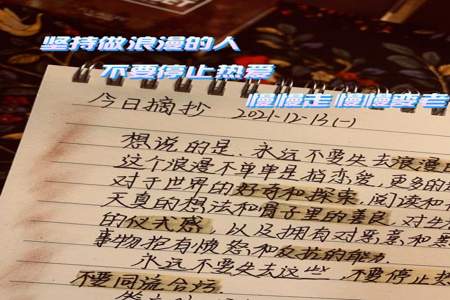 坚持做浪漫的人
不要停止热爱
慢慢走 慢慢变老
今日摘抄 2021-12-13(一)
想说的是,永远不要失去浪漫
这个浪漫不单单是指恋爱,更多的
对于世界的好奇和探索,阅读和
天真的想法和骨子里的善良,对生
的仪式感,以及拥有对恶意和
事物抱有愤怒和反抗的能力
永远不要失去这些,不要停止
不要同流合污.